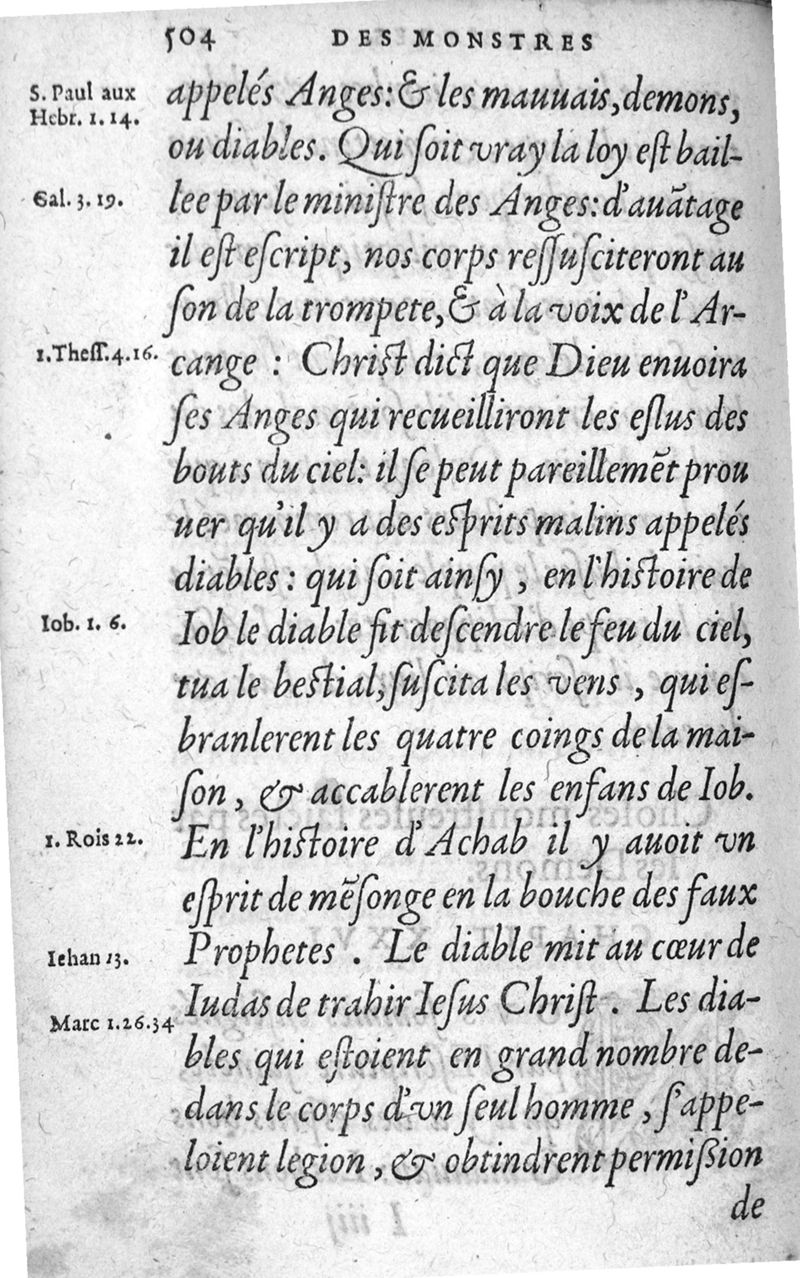 504 DES MONSTRES
S. Paul aux
Hebr. 1. 14.
appelés Anges: & les mauuais, demons,
ou diables. Qui ſoit vray la loy eſt bail-
Gal. 3. 19.
lee par le miniſtre des Anges: d'auãtage
il eſt eſcript, nos corps reſſuſciteront au
ſon de la trompete, & à la voix de l'Ar-
1. Theſſ. 4. 16.
cange : Chriſt dict que Dieu enuoira
ſes Anges qui recueilliront les eſlus des
bouts du ciel: il ſe peut pareillemẽt prou
uer qu'il y a des eſprits malins appelés
diables : qui ſoit ainſy , en l'hiſtoire de
Iob. 1. 6.
Iob le diable fit deſcendre le feu du ciel,
tua le beſtial, ſuſcita les vens , qui eſ-
branlerent les quatre coings de la mai-
ſon , & accablerent les enfans de Iob.
1. Rois 22.
En l'hiſtoire d'Achab il y auoit vn
eſprit de mẽſonge en la bouche des faux
Iehan 13.
Prophetes . Le diable mit au cœur de
Marc 1.26.34
Iudas de trahir Ieſus Chriſt . Les dia-
bles qui eſtoient en grand nombre de-
dans le corps d'vn ſeul homme , ſ'appe-
loient legion , & obtindrent permiſsion
de